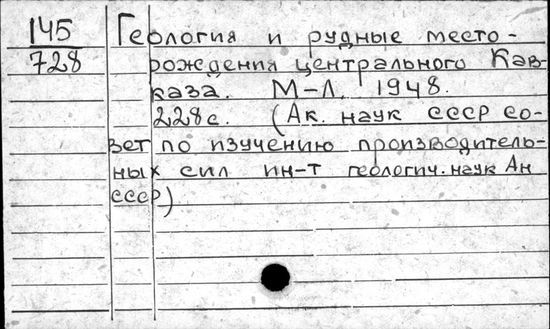 145 Геология и рудные место-
728 рождения центрального Кав-
каза. М-Л. 1948.
228с. (Ак. наук СССР со-
вет по изучению производитель-
ных сил ин-т геологич. наук Ан
СССР)